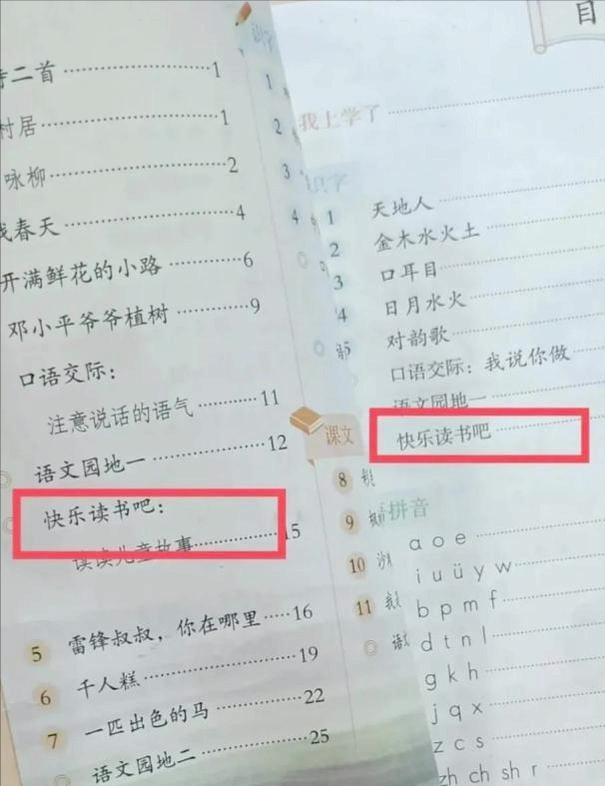 二首……1
村居……1
咏柳……2
找春天……4
开满鲜花的小路……6
邓小平爷爷植树……9
口语交际：
注意说话的语气……11
语文园地一……12
快乐读书吧：
读读儿童故事……15
5 雷锋叔叔，你在哪里……16
6 千人糕……19
7 一匹出色的马……22
语文园地二……25
识字
1
2
3
4
课文
8
9
10
11
目
我上学了
识字
1 天地人
2 金木水火土
3 口耳目
4 日月水火
5 对韵歌
口语交际：我说你做
语文园地一
快乐读书吧
拼音
a o e
i u ü y w
b p m f
d t n l
g k h
j q x
z c s
zh ch sh r